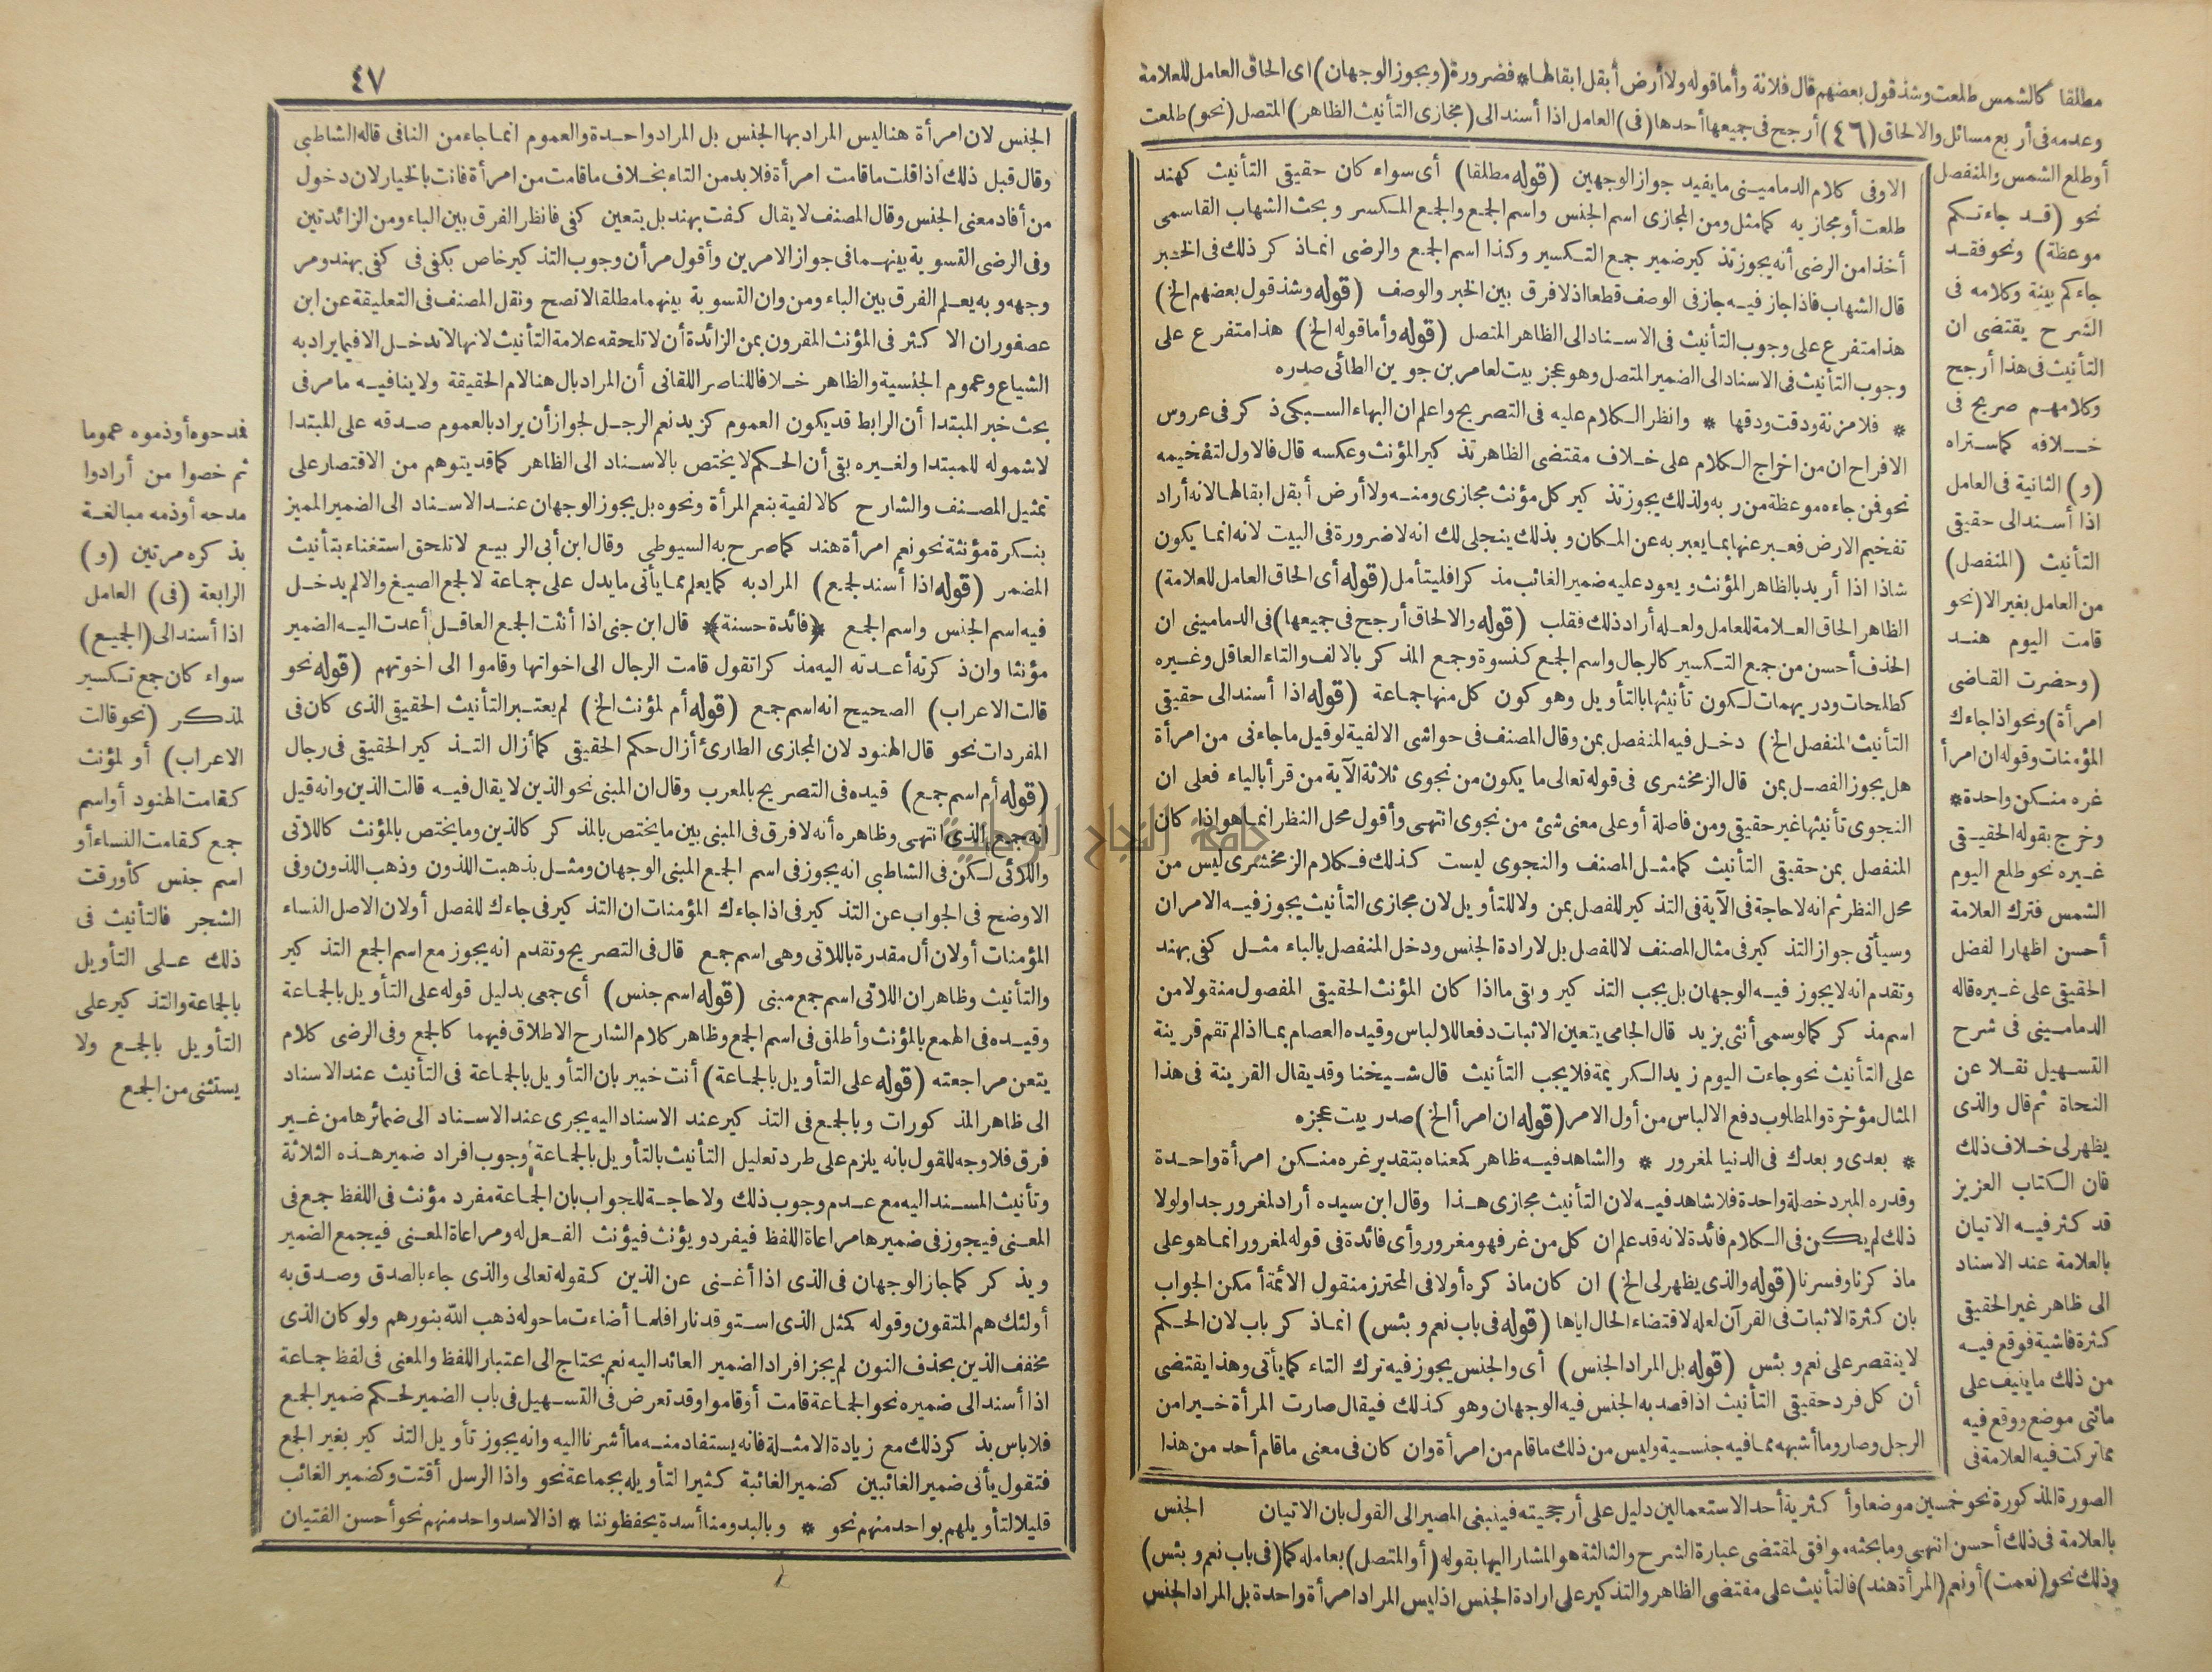 مطلقا كالشمس طلعت وشذ قول بعضهم قال فلانة وأما قوله ولا أرض أبقل ابقالها * فضرورة (ويجوز الوجهان) اى الحاق العامل للعلامة
وعدمه فى أربع مسائل والالحاق (٤٦) أرجح فى جميعها أحدها (فى) العامل اذا أسند الى (مجازى التأنيث الظاهر) المتصل (نحو) طلعت
أو طلع الشمس والمنفصل
نحو (قد جاءتكم
موعظة) ونحو فقد
جاءكم بينة وكلامه فى
الشرح يقتضى ان
التأنيث فى هذا أرجح
وكلامهم صريح فى
خلافه كما ستراه
(و) الثانية فى العامل
اذا أسند الى حقيقى
التأنيث (المنفصل)
من العامل بغير الا (نحو
قامت اليوم هند
(وحضرت القاضى
امرأة) ونحو اذا جاءك
المؤمنات وقوله ان امرأ
غره منكن واحدة *
وخرج بقوله الحقيقى
غيره نحو طلع اليوم
الشمس فترك العلامة
أحسن اظهارا لفضل
الحقيقى على غيره قاله
الدمامينى فى شرح
التسهيل نقلا عن
النحاة ثم قال والذى
يظهر لى خلاف ذلك
فان الكتاب العزيز
قد كثر فيه الاتيان
بالعلامة عند الاسناد
الى ظاهر غير الحقيقى
كثرة فاشية فوقع فيه
من ذلك ما ينيف على
مائتى موضع ووقع فيه
مما تركت فيه العلامة فى
الاوفى كلام الدمامينى ما يفيد جواز الوجهين (قوله مطلقا) أى سواء كان حقيقى التأنيث كهند
طلعت أو مجازيه كما مثل ومن المجازى اسم الجنس واسم الجمع والجمع المكسر وبحث الشهاب القاسمى
أخذا من الرضى أنه يجوز تذكير ضمير جمع التكسير وكذا اسم الجمع والرضى انما ذكر ذلك فى الخبر
قال الشهاب فاذا جاز فيه جاز فى الوصف قطعا اذلا فرق بين الخبر والوصف (قوله وشذ قول بعضهم الخ)
هذا متفرع على وجوب التأنيث فى الاسناد الى الظاهر المتصل (قوله وأما قوله الخ) هذا متفرع على
وجوب التأنيث فى الاسناد الى الضمير المتصل وهو عجز بيت لعامر بن جوين الطائى صدره
* فلا مزنة ودقت ودقها * وانظر الكلام عليه فى التصريح واعلم ان البهاء السبكى ذكر فى عروس
الافراح ان من اخراج الكلام على خلاف مقتضى الظاهر تذكير المؤنث وعكسه قال فالاول لتفخيمه
نحو فمن جاءه موعظة من ربه ولذلك يجوز تذكير كل مؤنث مجازى ومنه ولا أرض أبقل ابقالها لانه أراد
تفخيم الارض فعبر عنها بما يعبر به عن المكان وبذلك ينجلى لك انه لا ضرورة فى البيت لانه انما يكون
شاذا اذا أريد بالظاهر المؤنث ويعود عليه ضمير الغائب مذكرا فليتأمل (قوله أى الحاق العامل للعلامة)
الظاهر الحاق العلامة للعامل ولعله أراد ذلك فقلب (قوله والالحاق أرجح فى جميعها) فى الدمامينى ان
الحذف أحسن من جمع التكسير كالرجال واسم الجمع كنسوة وجمع المذكر بالالف والتاء العاقل وغيره
كطلحات ودريهمات لكون تأنيثها بالتأويل وهو كون كل منها جماعة (قوله اذا أسند الى حقيقى
التأنيث المنفصل الخ) دخل فيه المنفصل بمن وقال المصنف فى حواشى الالفية لو قيل ما جاءنى من امرأة
هل يجوز الفصل بمن قال الزمخشرى فى قوله تعالى ما يكون من نجوى ثلاثة الآية من قرأ بالياء فعلى ان
النجوى تأنيثها غير حقيقى ومن فاصلة أو على معنى شئ من نجوى انتهى وأقول محل النظر انما هو اذا كان
المنفصل بمن حقيقى التأنيث كما مثل المصنف والنجوى ليست كذلك فكلام الزمخشرى ليس من
محل النظر ثم انه لا حاجة فى الآية فى التذكير للفصل بمن ولا للتأويل لان مجازى التأنيث يجوز فيه الامران
وسيأتى جواز التذكير فى مثال المصنف لا للفصل بل لارادة الجنس ودخل المنفصل بالباء مثل كفى بهند
وتقدم انه لا يجوز فيه الوجهان بل يجب التذكير وبقى ما اذا كان المؤنث الحقيقى المفصول منقولا من
اسم مذكر كما لو سمى أنثى بزيد قال الجامى يتعين الاثبات دفعا للالباس وقيده العصام بما اذا لم تقم قرينة
على التأنيث نحو جاءت اليوم زيد الكريمة فلا يجب التأنيث قال شيخنا وقد يقال القرينة فى هذا
المثال مؤخرة والمطلوب دفع الالباس من أول الامر (قوله ان امرأ الخ) صدر بيت عجزه
* بعدى وبعدك فى الدنيا لمغرور * والشاهد فيه ظاهر كمعناه بتقدير غره منكن امرأة واحدة
وقدره المبرد خصلة واحدة فلا شاهد فيه لان التأنيث مجازى هذا وقال ابن سيده أراد لمغرور جدا ولولا
ذلك لم يكن فى الكلام فائدة لانه قد علم ان كل من غر فهو مغرور وأى فائدة فى قوله لمغرور انما هو على
ما ذكرنا وفسرنا (قوله والذى يظهر لى الخ) ان كان ما ذكره أولا فى المحترز منقول الأئمة أمكن الجواب
بان كثرة الاثبات فى القرآن لعله لاقتضاء الحال اياها (قوله فى باب نعم وبئس) انما ذكر باب لان الحكم
لا ينقصر على نعم وبئس (قوله بل المراد الجنس) أى والجنس يجوز فيه ترك التاء كما يأتى وهذا يقتضى
أن كل فرد حقيقى التأنيث اذا قصد به الجنس فيه الوجهان وهو كذلك فيقال صارت المرأة خيرا من
الرجل وصار وما أشبهه مما فيه جنسية وليس من ذلك ما قام من امرأة وان كان فى معنى ما قام أحد من هذا
الصورة المذكورة نحو خمسين موضعا وأكثرية أحد الاستعمالين دليل على أرجحيته فينبغى المصير الى القول بان الاتيان
الجنس
بالعلامة فى ذلك أحسن انتهى وما بحثه موافق لمقتضى عبارة الشرح والثالثة هو المشار اليها بقوله (أو المتصل) بعامله كما (فى باب نعم وبئس)
وذلك نحو (نعمت) أو نعم (المرأة هند) فالتأنيث على مقتضى الظاهر والتذكير على ارادة الجنس اذ ليس المراد امرأة واحدة بل المراد الجنس
٤٧
الجنس لان امرأة هنا ليس المراد بها الجنس بل المراد واحدة والعموم انما جاء من النافى قاله الشاطبى
وقال قبل ذلك اذا قلت ما قامت امرأة فلا بد من التاء بخلاف ما قامت من امرأة فانت بالخيار لان دخول
من أفاد معنى الجنس وقال المصنف لا يقال كفت بهند بل يتعين كفى فانظر الفرق بين الباء ومن الزائدتين
وفى الرضى التسوية بينهما فى جواز الامرين وأقول مر أن وجوب التذكير خاص بكفى فى كفى بهند ومر
وجهه وبه يعلم الفرق بين الباء ومن وان التسوية بينهما مطلقا لا تصح ونقل المصنف فى التعليقة عن ابن
عصفور ان الاكثر فى المؤنث المقرون بمن الزائدة أن لا تلحقه علامة التأنيث لانها لا تدخل الا فيما يراد به
الشياع وعموم الجنسية والظاهر خلافا للناصر اللقانى أن المراد بال هنا لام الحقيقة ولا ينافيه ما مر فى
بحث خبر المبتدا أن الرابط قد يكون العموم كزيد نعم الرجل لجواز أن يراد بالعموم صدقه على المبتدا
لا شموله للمبتدا ولغيره بقى أن الحكم لا يختص بالاسناد الى الظاهر كما قد يتوهم من الاقتصار على
تمثيل المصنف والشارح كالالفية بنعم المرأة ونحوه بل يجوز الوجهان عند الاسناد الى الضمير المميز
بنكرة مؤنثة نحو نعم امرأة هند كما صرح به السيوطى وقال ابن أبى الربيع لا تلحق استغناء بتأنيث
المضمر (قوله اذا أسند لجمع) المراد به كما يعلم مما يأتى ما يدل على جماعة لا لجمع الصيغ والا لم يدخل
فيه اسم الجنس واسم الجمع * (فائدة حسنة) * قال ابن جنى اذا أنثت الجمع العاقل أعدت اليه الضمير
مؤنثا وان ذكرته أعدته اليه مذكرا تقول قامت الرجال الى اخواتها وقاموا الى اخوتهم (قوله نحو
قالت الاعراب) الصحيح انه اسم جمع (قوله أم لمؤنث الخ) لم يعتبر التأنيث الحقيقى الذى كان فى
المفردات نحو قال الهنود لان المجازى الطارئ أزال حكم الحقيقى كما أزال التذكير الحقيقى فى رجال
(قوله أم اسم جمع) قيده فى التصريح بالمعرب وقال ان المبنى نحو الذين لا يقال فيه قالت الذين وانه قيل
انه جمع الذى انتهى وظاهره أنه لا فرق فى المبنى بين ما يختص بالمذكر كالذين وما يختص بالمؤنث كاللاتى
واللائى لكن فى الشاطبى انه يجوز فى اسم الجمع المبنى الوجهان ومثل بذهبت اللذون وذهب اللذون وفى
الاوضح فى الجواب عن التذكير فى اذا جاءك المؤمنات ان التذكير فى جاءك للفصل أو لان الاصل النساء
المؤمنات أو لان أل مقدرة باللاتى وهى اسم جمع قال فى التصريح وتقدم انه يجوز مع اسم الجمع التذكير
والتأنيث وظاهر ان اللاتى اسم جمع مبنى (قوله اسم جنس) أى جمعى بدليل قوله على التأويل بالجماعة
وقيده فى الهمع بالمؤنث وأطلق فى اسم الجمع وظاهر كلام الشارح الاطلاق فيهما كالجمع وفى الرضى كلام
يتعين مراجعته (قوله على التأويل بالجماعة) أنت خبير بان التأويل بالجماعة فى التأنيث عند الاسناد
الى ظاهر المذكورات وبالجمع فى التذكير عند الاسناد اليه يجرى عند الاسناد الى ضمائرها من غير
فرق فلا وجه للقول بانه يلزم على طرد تعليل التأنيث بالتأويل بالجماعة وجوب افراد ضمير هذه الثلاثة
وتأنيث المسند اليه مع عدم وجوب ذلك ولا حاجة للجواب بان الجماعة مفرد مؤنث فى اللفظ جمع فى
المعنى فيجوز فى ضميرها مراعاة اللفظ فيفرد ويؤنث فيؤنث الفعل له ومراعاة المعنى فيجمع الضمير
ويذكر كما جاز الوجهان فى الذى اذا أغنى عن الذين كقوله تعالى والذى جاء بالصدق وصدق به
أولئك هم المتقون وقوله كمثل الذى استوقد نارا فلما أضاءت ما حوله ذهب الله بنورهم ولو كان الذى
مخفف الذين بحذف النون لم يجز افراد الضمير العائد اليه نعم يحتاج الى اعتبار اللفظ والمعنى فى لفظ جماعة
اذا أسند الى ضميره نحو الجماعة قامت أو قاموا وقد تعرض فى التسهيل فى باب الضمير لحكم ضمير الجمع
فلا باس بذكر ذلك مع زيادة الامثلة فانه يستفاد منه ما أشرنا اليه وانه يجوز تأويل التذكير بغير الجمع
فتقول يأتى ضمير الغائبين كضمير الغائبة كثيرا لتأويله بجماعة نحو واذا الرسل أقتت وكضمير الغائب
قليلا لتأويلهم بواحد منهم نحو * وبالبدو منا أسدة يحفظوننا * اذ الاسد واحد منهم نحو أحسن الفتيان
فمدحوه أو ذموه عموما
ثم خصوا من أرادوا
مدحه أو ذمه مبالغة
بذكره مرتين (و)
الرابعة (فى) العامل
اذا أسند الى (الجمع)
سواء كان جمع تكسير
لمذكر (نحو قالت
الاعراب) أو لمؤنث
كقامت الهنود أو اسم
جمع كقامت النساء أو
اسم جنس كأورقت
الشجر فالتأنيث فى
ذلك على التأويل
بالجماعة والتذكير على
التأويل بالجمع ولا
يستثنى من الجمع
جامعة النجاح الوطنية